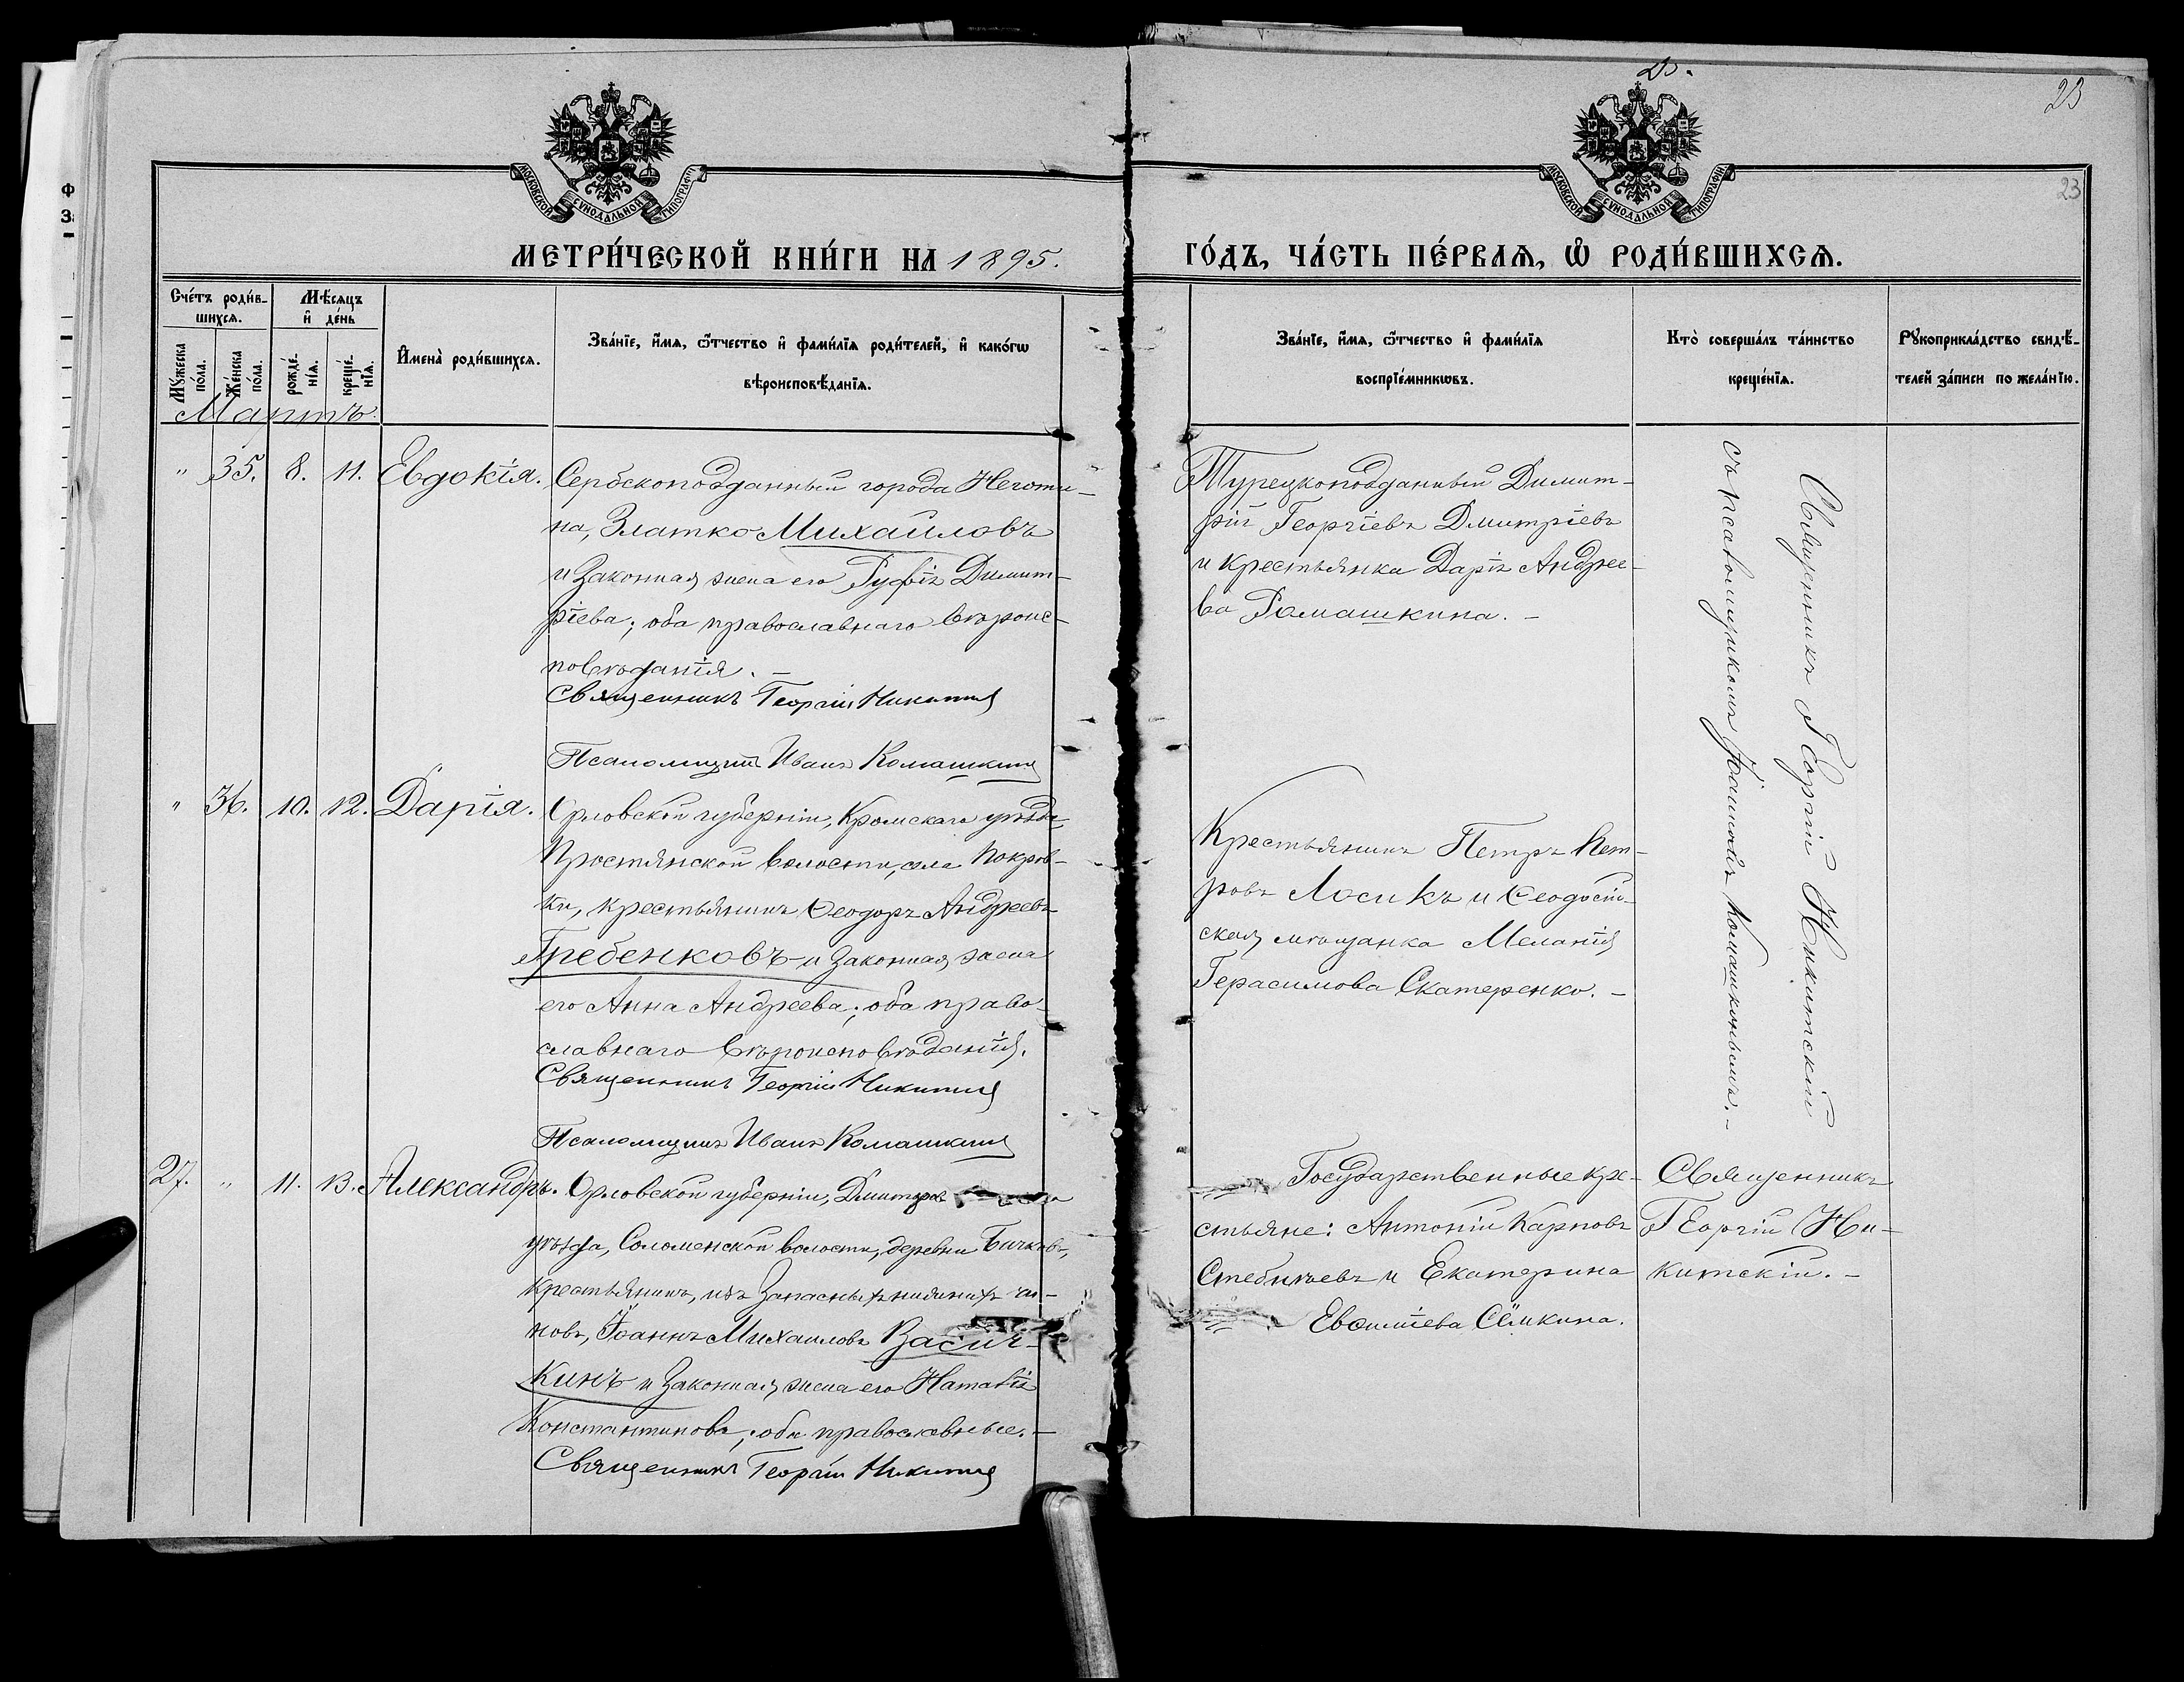 23
23
23
МОСКОВСКОЙ СѴНОДАЛЬНОЙ ТИПОГРАФІИ
МОСКОВСКОЙ СѴНОДАЛЬНОЙ ТИПОГРАФІИ
МЕТРИ́ЧЕСКОЙ КНИ́ГИ НА 1895.
ГО́ДЪ, ЧА́СТЬ ПЕ́РВАЯ, Ѡ РОДИ́ВШИХСЯ.
Сче́тъ роди́в-
шихся.
Мѣсяцъ
и де́нь
Му́жеска по́ла.
Же́нска по́ла.
рожде́-
нія.
креще́-
нія.
Имена̀ роди́вшихся.
Зва́ніе, и́мя, ѻ́тчество и фами́лія роди́телей, и како́гѡ
вѣроисповѣ́данія.
Зва́ніе, и́мя, ѻ́тчество и фами́лія
воспріе́мникѡвъ.
Кто̀ соверша́лъ та́инство
креще́нія.
Рукоприкла́дство свидѣ́-
телей за́писи по жела́нію.
Мартъ.
" 35. 8. 11. Евдокія.
Сербскоподданный города Неготи-
на, Златко Михаиловъ
и законная жена его Руфія Димит-
ріева; оба православнаго вѣроис-
повѣданія. -
Священникъ Георгій Никитскій
Псаломщикъ Иванъ Комашкинъ
Турецкоподданный Димит-
рій Георгіевъ Дмитріевъ
и крестьянка Дарія Андрее-
ва Ромашкина. -
Священникъ Георгій Никитскій
съ псаломщикомъ Іоанномъ Комашкинымъ. -
" 36. 10. 12. Дарія.
Орловской губерніи, Кромскаго уѣзда,
волости, села Покров-
ки, крестьянинъ Ѳеодоръ Андреевъ
Гребенковъ и законная жена
его Анна Андреева; оба право-
славнаго вѣроисповѣданія.
Священникъ Георгій Никитскій
Псаломщикъ Иванъ Комашкинъ
Крестьянинъ Петръ Пет-
ровъ Лосикъ и Ѳеодосій-
ская мѣщанка Меланія
Герасимова Скатеренко. -
27. " 11. 13. Александръ.
Орловской губерніи, Дмитров
уѣзда, Соломенской волости, деревни
крестьянинъ, изъ запасныхъ нижнихъ чи-
новъ, Іоаннъ Михаиловъ Васич-
кинъ и законная жена его Наталія
Константинова; оба православные. -
Священникъ Георгій Никитскій
Государственные кре-
стьяне: Антоній Карповъ
и Екатерина
Евѳиміева Сёмкина.
Священникъ
Георгій Ни-
китскій. -